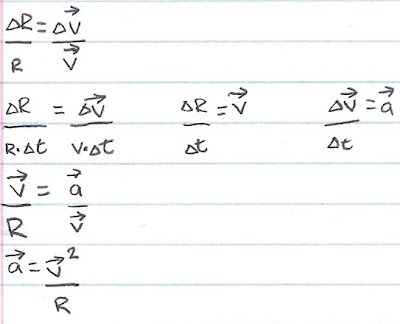 ΔR/R = ΔV⃗/V⃗
ΔR/R·Δt = ΔV⃗/V·Δt   ΔR/Δt = V⃗   ΔV⃗/Δt = a⃗
V⃗/R = a⃗/V⃗
a⃗ = V⃗²/R